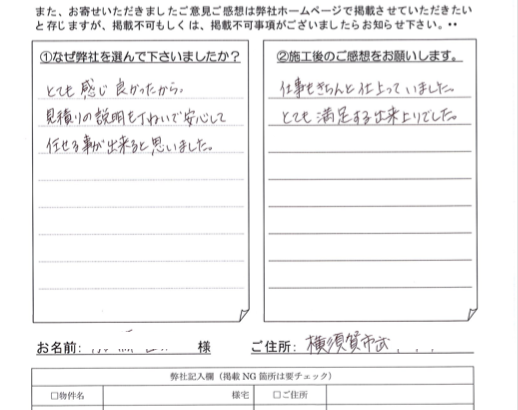 また、お寄せいただきましたご意見ご感想は弊社ホームページで掲載させていただきたい
と存じますが、掲載不可もしくは、掲載不可事項がございましたらお知らせ下さい。••
①なぜ弊社を選んで下さいましたか？
とても感じ良かったから。
見積りの説明もていねいで安心して
任せる事が出来ると思いました。
②施工後のご感想をお願いします。
仕事もきちんと仕上っていました。
とても満足する出来上りでした。
お名前: 様 ご住所: 横須賀市
弊社記入欄（掲載 NG 箇所は要チェック）
□物件名 様宅 □ご住所